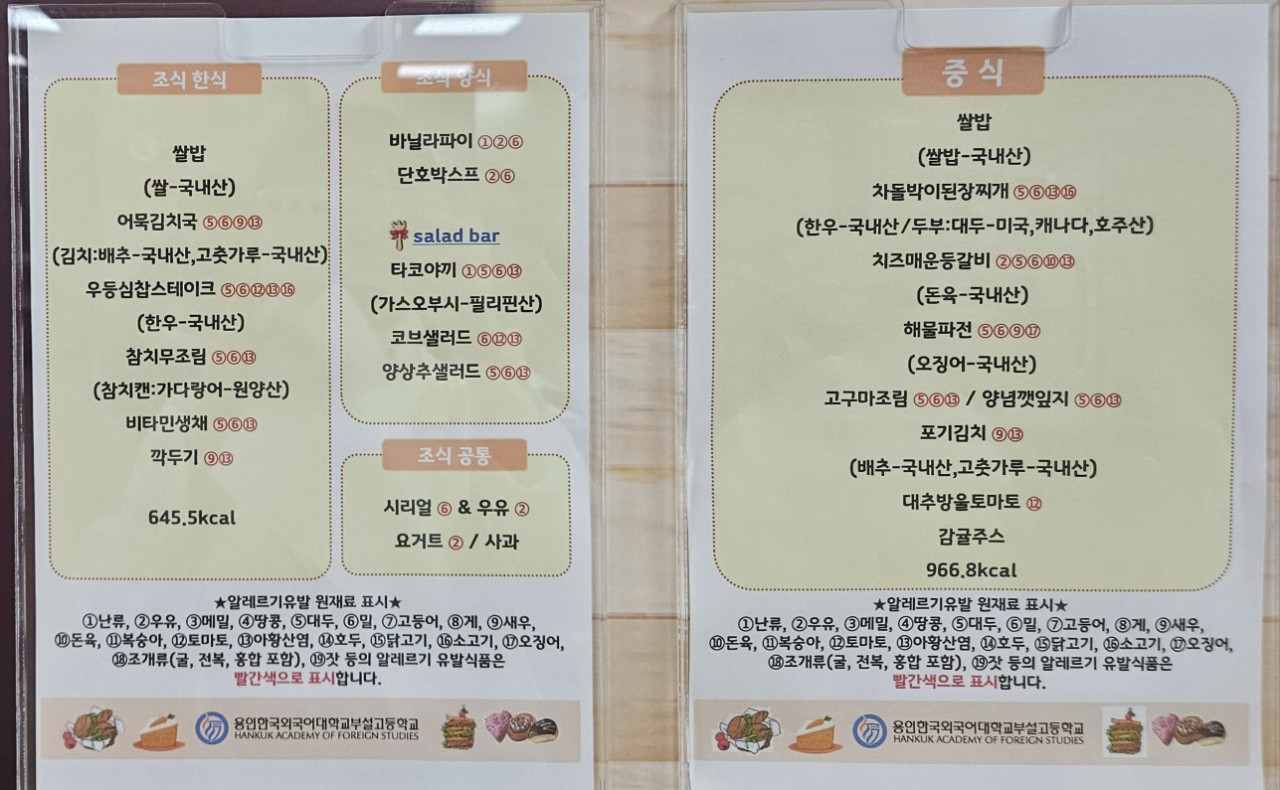 조식 한식
쌀밥
(쌀-국내산)
어묵김치국 ⑤⑥⑨⑬
(김치:배추-국내산,고춧가루-국내산)
우등심찹스테이크 ⑤⑥⑫⑬⑯
(한우-국내산)
참치무조림 ⑤⑥⑬
(참치캔:가다랑어-원양산)
비타민생채 ⑤⑥⑬
깍두기 ⑨⑬
645.5kcal
조식 양식
바닐라파이 ①②⑥
단호박스프 ②⑥
salad bar
타코야끼 ①⑤⑥⑬
(가스오부시-필리핀산)
코브샐러드 ⑥⑫⑬
양상추샐러드 ⑤⑥⑬
조식 공통
시리얼 ⑥ & 우유 ②
요거트 ② / 사과
★알레르기유발 원재료 표시★
①난류, ②우유, ③메밀, ④땅콩, ⑤대두, ⑥밀, ⑦고등어, ⑧게, ⑨새우,
⑩돈육, ⑪복숭아, ⑫토마토, ⑬아황산염, ⑭호두, ⑮닭고기, ⑯소고기, ⑰오징어,
⑱조개류(굴, 전복, 홍합 포함), ⑲잣 등의 알레르기 유발식품은
빨간색으로 표시합니다.
용인한국외국어대학교부설고등학교
HANKUK ACADEMY OF FOREIGN STUDIES
중 식
쌀밥
(쌀밥-국내산)
차돌박이된장찌개 ⑤⑥⑬⑯
(한우-국내산/두부:대두-미국,캐나다,호주산)
치즈매운등갈비 ②⑤⑥⑩⑬
(돈육-국내산)
해물파전 ⑤⑥⑨⑰
(오징어-국내산)
고구마조림 ⑤⑥⑬ / 양념깻잎지 ⑤⑥⑬
포기김치 ⑨⑬
(배추-국내산,고춧가루-국내산)
대추방울토마토 ⑫
감귤주스
966.8kcal
★알레르기유발 원재료 표시★
①난류, ②우유, ③메밀, ④땅콩, ⑤대두, ⑥밀, ⑦고등어, ⑧게, ⑨새우,
⑩돈육, ⑪복숭아, ⑫토마토, ⑬아황산염, ⑭호두, ⑮닭고기, ⑯소고기, ⑰오징어,
⑱조개류(굴, 전복, 홍합 포함), ⑲잣 등의 알레르기 유발식품은
빨간색으로 표시합니다.
용인한국외국어대학교부설고등학교
HANKUK ACADEMY OF FOREIGN STUDIES